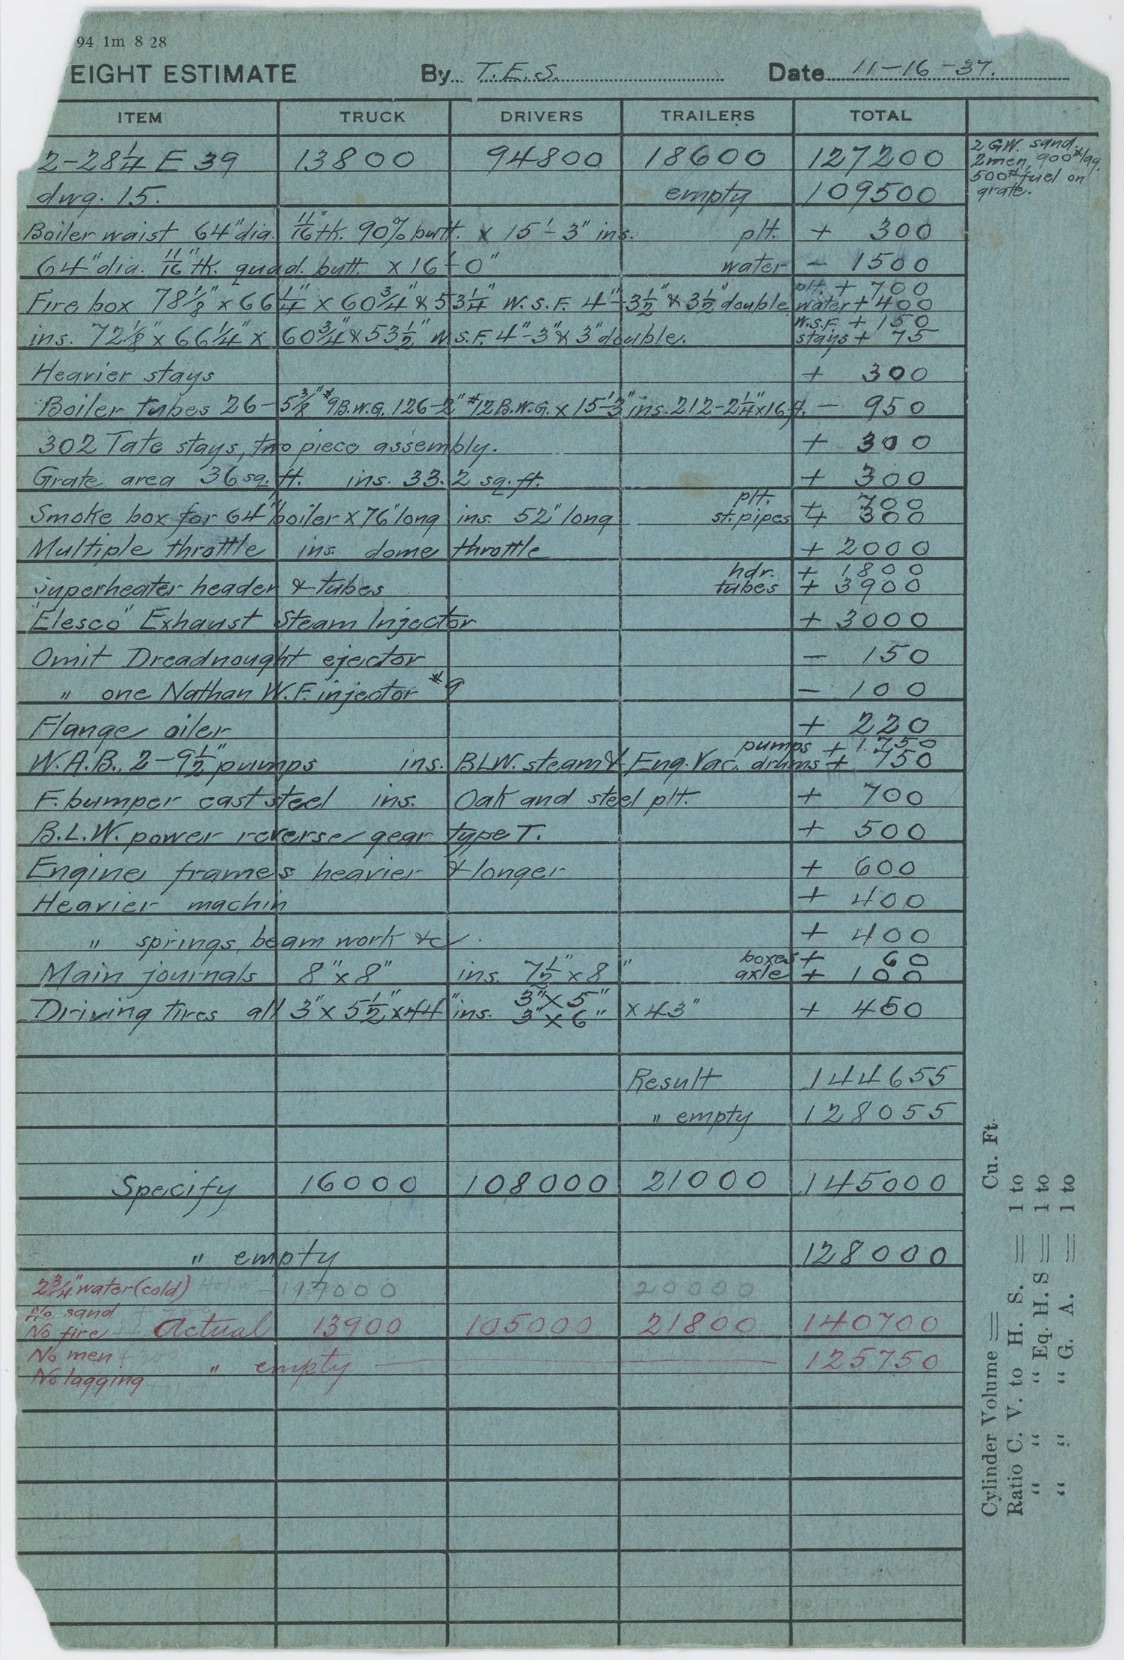 94 1m 8 28
EIGHT ESTIMATE By T.E.S. Date 11-16-37.
ITEM TRUCK DRIVERS TRAILERS TOTAL
2-28¼ E 39 13800 94800 18600 127200
2 G.W. sand.
2 men, 900# lag.
500# fuel on
grate.
dwg. 15. empty 109500
Boiler waist 64" dia. 11/16" th. 90% butt. x 15'-3" ins. plt. + 300
64" dia. 11/16" th. quad. butt. x 16'-0" water - 1500
Fire box 78⅛" x 66¼ x 60¾" x 53¼" W.S.F. 4"-3½" x 3½" double plt. + 700
water + 400
ins. 72⅛" x 66¼" x 60¾" x 53½" W.S.F. 4"-3" x 3" double. W.S.F. + 150
stays + 75
Heavier stays + 300
Boiler tubes 26-5⅜" #9 B.W.G. 126-2" #12 B.W.G. x 15'-3" ins. 212-2¼" x 16 ft. - 950
302 Tate stays, two piece assembly. + 300
Grate area 36 sq. ft. ins. 33.2 sq. ft. + 300
Smoke box for 64" boiler x 76" long ins. 52" long plt. + 700
st. pipes + 300
Multiple throttle ins. dome throttle + 2000
Superheater header & tubes hdr. + 1800
tubes + 3900
"Elesco" Exhaust Steam Injector + 3000
Omit Dreadnought ejector - 150
" one Nathan W.F. injector #9 - 100
Flange oiler + 220
W.A.B. 2-9½" pumps ins. BLW. steam & Eng. Vac. pumps + 1750
drums + 750
F. bumper cast steel ins. Oak and steel plt. + 700
B.L.W. power reverse gear type T. + 500
Engine frames heavier & longer + 600
Heavier machin + 400
" springs, beam work &c. + 400
Main journals 8" x 8" ins. 7½" x 8" boxes + 60
axle + 100
Driving tires all 3" x 5½" x 44" ins. 3" x 5" x 43" + 450
3" x 6"
Result 144655
" empty 128055
Specify 16000 108000 21000 145000
" empty 128000
2¾" water (cold) 20000
No sand
No fire Actual 13900 105000 21800 140700
No men " empty 125750
No lagging
Cylinder Volume = Cu. Ft.
Ratio C. V. to H. S. = 1 to
" " " Eq. H. S = 1 to
" " " G. A. = 1 to